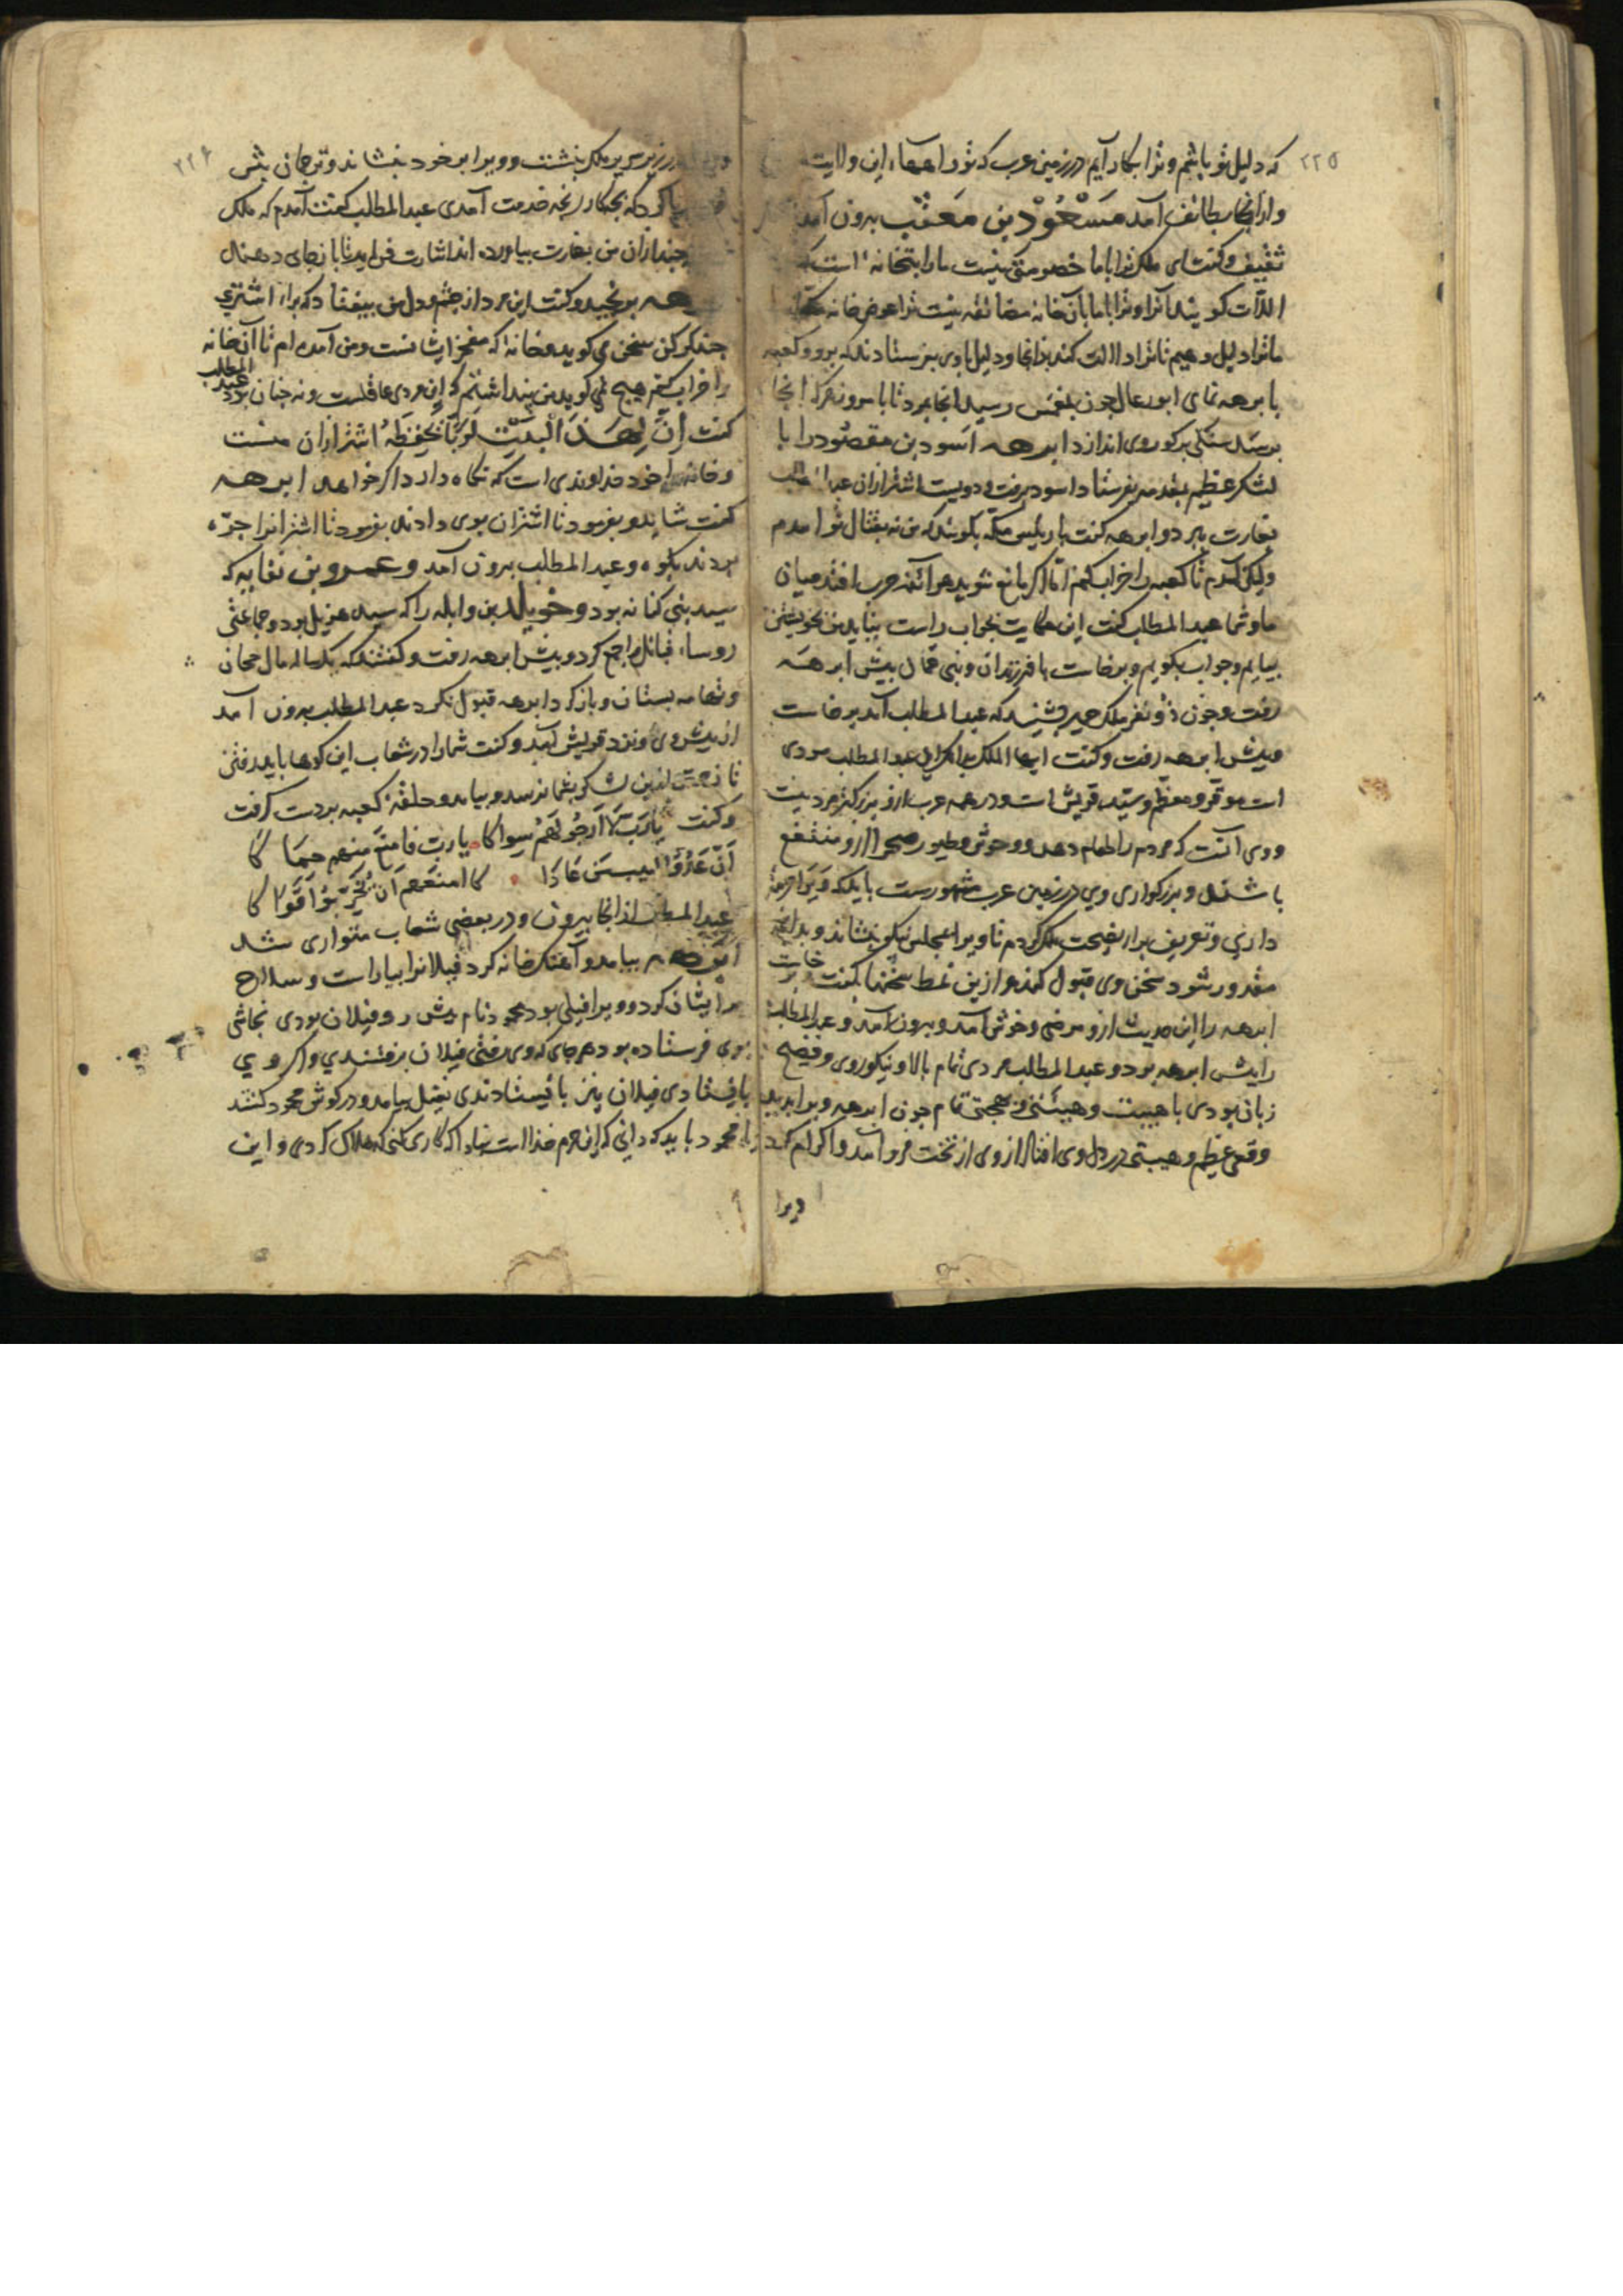 ٢٢٥
که دلیل تو باشم و ترا بکار آیم در زمین عرب که تو راهها این ولایت
و از آنجا بطائف آمد مَسْعُوْد بن مَعَتْب بیرون آمد
ثقیف و کفت ای ملک ترا با ما خصومتی نیست ما را بتخانه است که
اللّات کویند آنرا و ترا با ما با آن خانه مضائقه نیست ترا عوض خانه مکه
ما ترا دلیل دهیم تا ترا دلالت کند بدانجا و دلیل با وی بفرستادند که برو و کعبه
با برهه نمای ابورغال چون بمغمس رسید آنجا بمرد تا بامروز هر که آنجا
برسد سنکی بر کور وی اندازد ابرهه اسود بن مقصود را با
لشکر عظیم بمقدمه بفرستاد اسود برفت و دویست اشتر از آن عبدالمطلب
بغارت ببرد و ابرهه کفت با رئیس مکه بکوئید که من نه بقتال تو آمدم
ولیکن آمدم تا کعبه را خراب کنم اما اکر مانع شوید هر آئنه حرب افتد میان
ما و شما عبدالمطلب کفت این حکایت بجواب راست نیاید من بخویشتن
بیایم و جواب بکویم و برخاست با فرزندان و بنی عمان پیش ابرهه
رفت و چون ذو نفر ملک حمیر بشنید که عبدالمطلب آمد برخاست
و پیش ابرهه رفت و کفت ایها الملک عبدالمطلب مردی
است موقر و معظم و سید قریش است و در همه عرب ازو بزرکتر مرد نیست
و وی آنست که مردم را طعام دهد و وحوش و طیور صحرا ازو منتفع
باشند و بزرکواری وی در زمین عرب مشهورست باید که ویرا حرمت
داری و تعریف برادر نصیحت ملک کردم تا ویرا بمجلس نیکو بنشاند و بدانچه
مقدور شود سخن وی قبول کند و ازین نمط سخنها بکفت و برخاست
ابرهه را این حدیث ازو مرضی و خوش آمد و بیرون آمد و عبدالمطلب
را پیش ابرهه برد و عبدالمطلب مردی تمام بالا و نیکوروی و فصیح
زبان بودی با هیبت و هیئتی و بهجتی تمام چون ابرهه ویرا بدید
وقعی عظیم و هیبتی در دل وی افتاد از وی از تخت فرو آمد و اکرام کرد
ویرا
٢٢۶
در زیر سریر ملک بنشست و ویرا بر خود بنشاند و ترجمان پیش
کرد که بچه کار رنجه خدمت آمدی عبدالمطلب کفت آمدم که ملک
چند از آن من بغارت بیاورده اند اشارت فرماید تا بازجای دهند
ابرهه برنجید و کفت این مرد از چشم و دل من بیفتاد که برای اشتری
چند کرکن سخن می کوید و خانه که مفخر ایشانست و من آمده ام تا آن خانه
را خراب کنم هیچ نمی کوید من پنداشتم که این مردی عاقلست و نه چنان بود عبدالمطلب
کفت اِنَّ لِهَذَا الْبَیْتِ لَرَبًّا یَحْفَظُهُ اشتر از آن منست
و خانه را خود خداوندی است که نکاه دارد اکر خواهد ابرهه
کفت شاید و بفرمود تا اشتران بوی دادند بفرمود تا اشترانرا جره
بردند بکوه و عبدالمطلب بیرون آمد و عمرو بن نفایه که
سید بنی کنانه بود و خویلد بن واثله را که سید هذیل بود و جماعتی
روسا قبائل را جمع کرد و پیش ابرهه رفت و کفتند که یک ساله مال حجان
و تهامه بستان و باز کرد ابرهه قبول نکرد عبدالمطلب بیرون آمد
از پیش وی و نزد قریش آمد و کفت شما را در شعاب این کوهها باید رفتن
تا زحمتی ازین لشکر بشما نرسد و بیامد و حلقهٔ کعبه بر دست کرفت
و کفت یا رَبِّ لَا اَرْجُو لَهُمْ سِوَاکا یا رَبِّ فَامْنَعْ مِنْهُم حِمَاکا
اِنَّ عَدُوَّ البیتِ مَن عَادَاکا امنعهم اَنْ یُخَرِّبُوْا قُرَاکا
عبدالمطلب از آنجا بیرون و در بعضی شعاب متواری شد
ابرهه بیامد و آهنک خانه کرد فیلانرا بیاراست و سلاح
بر ایشان کرد و ویرا فیلی بود محمود نام پیش رو فیلان بودی نجاشی
بوی فرستاده بود هر جای که وی رفتی فیلان برفتندی و اکر وی
بایستادی فیلان نیز بایستادندی نفیل بیامد و در کوش محمود کفت
یا محمود باید که دانی که این حرم خداست مبادا که کاری کنی که هلاک کردی و این